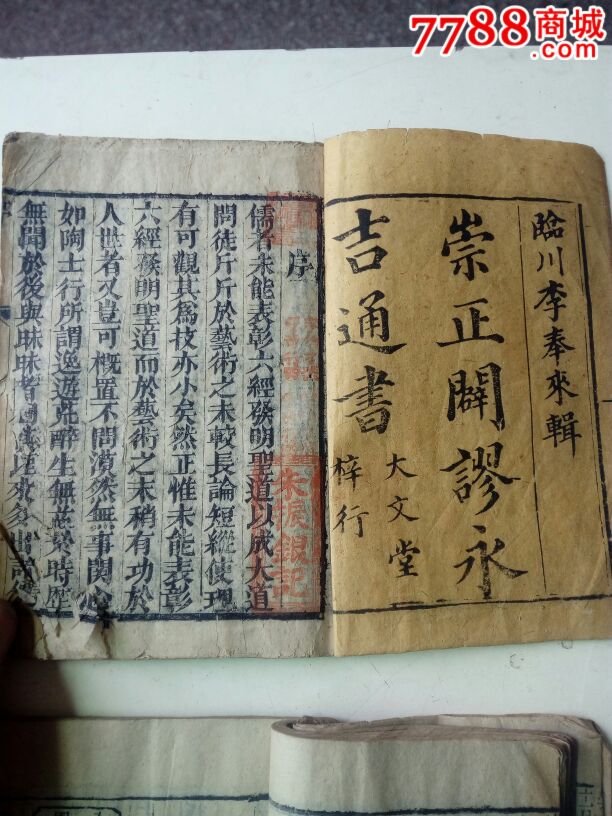 7788商城
臨川李奉來輯
崇正闢謬永
吉通書
大文堂
梓行
序
儒者未能表彰六經發明聖道以成大道
問徒斤斤於藝術之末較長論短縱使理
有可觀其為技亦小矣然正惟未能表彰
六經發明聖道而於藝術之末稍有功於
人世者又豈可概置不問漠然無事關念
如陶士行所謂逸遊荒醉生無益於時歿
無聞於後與昧昧者
朱振銀記